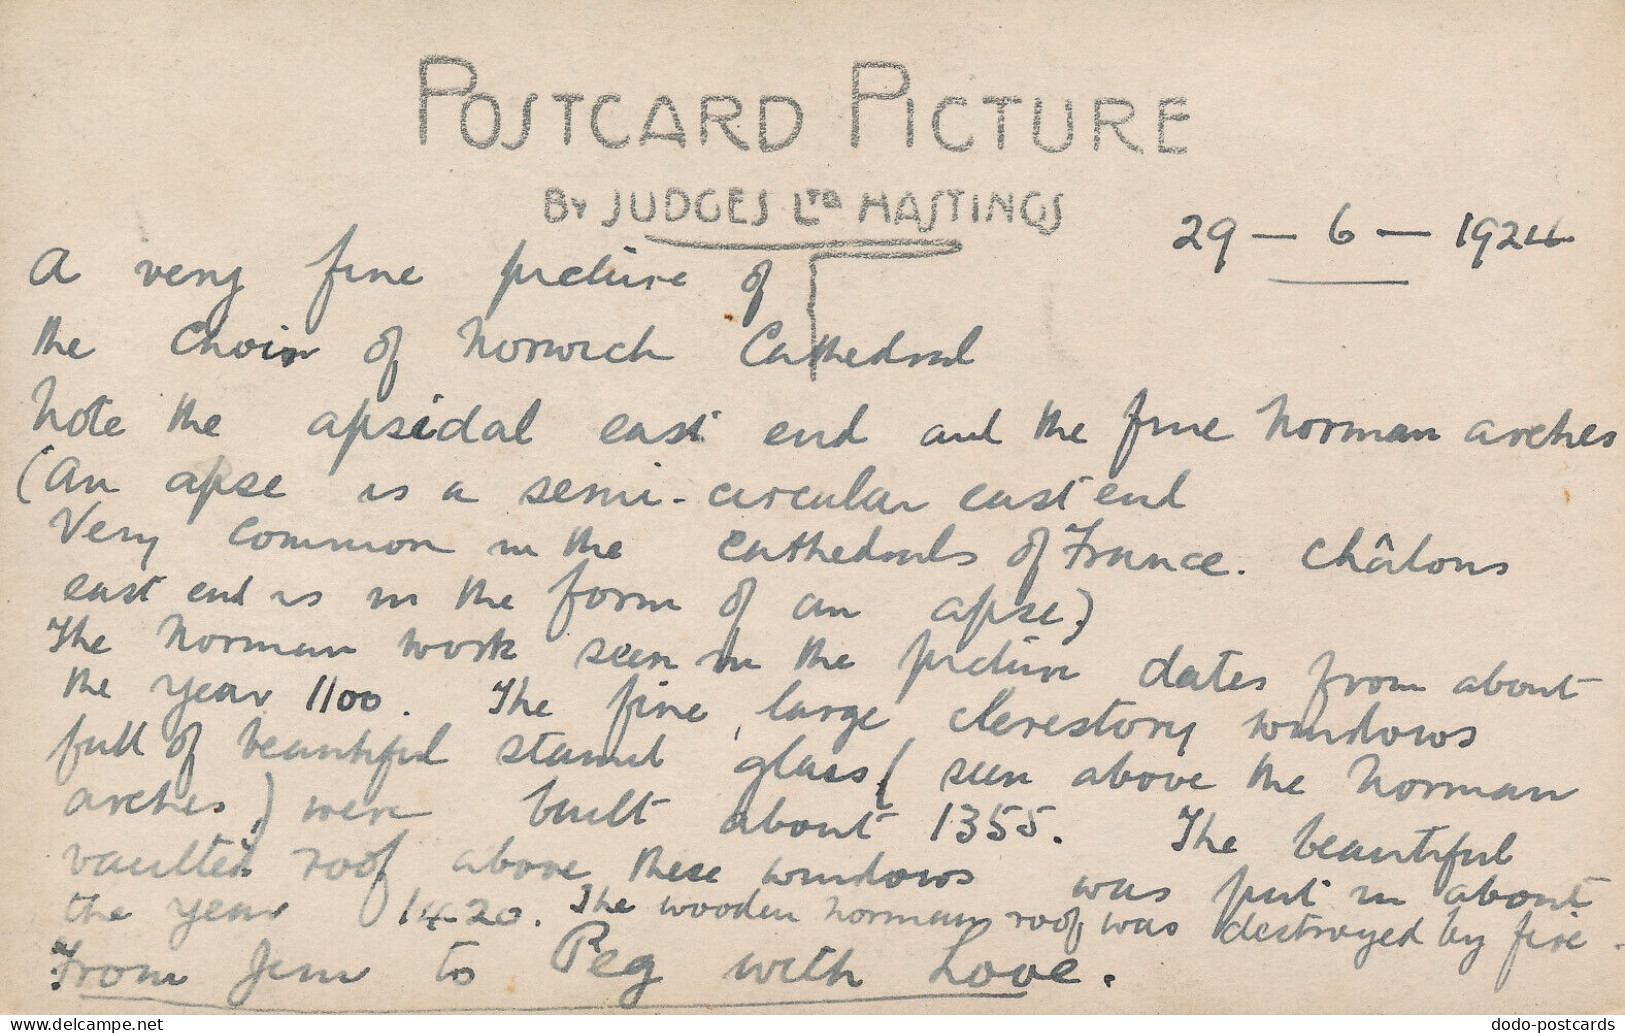 POSTCARD PICTURE
BY JUDGES LTD HASTINGS
29 — 6 — 1924
A very fine picture of
the Choir of Norwich Cathedral
Note the apsidal east end and the fine Norman arches
(An apse is a semi-circular east end
Very common in the cathedrals of France. Châlons
east end is in the form of an apse)
The Norman work seen in the picture dates from about
the year 1100. The fine, large clerestory windows
full of beautiful stained glass (seen above the Norman
arches) were built about 1355. The beautiful
vaulted roof above these windows was put in about
the year 1420. The wooden Norman roof was destroyed by fire.
From Jim to Peg with Love.
dodo-postcards
© www.delcampe.net